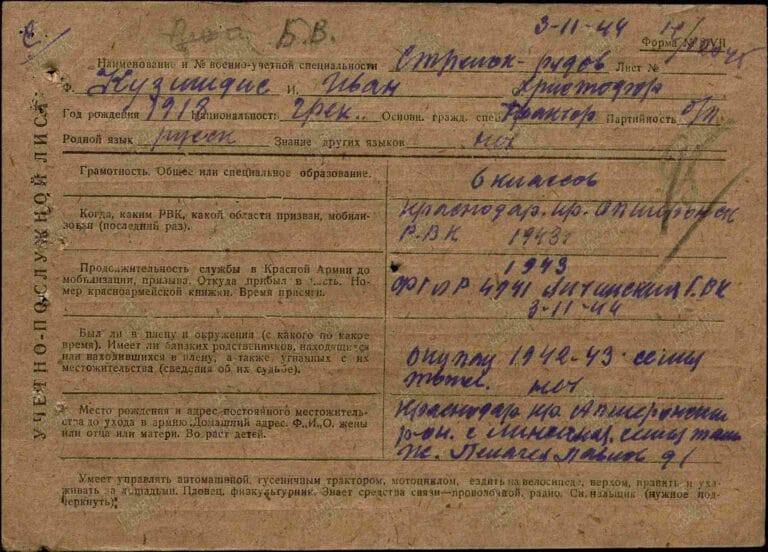 Б.В.
3-11-44
Форма № 8/VII
Наименование и № военно-учетной специальности Стрелок-рядов Лист №
Ф. Кузмидис И. Иван О. Христофор
Год рождения 1918 Национальность грек.. Основн. гражд. спец. Трактор Партийность б/п
Родной язык русск Знание других языков нет
УЧЕТНО-ПОСЛУЖНОЙ ЛИСТ
Грамотность. Общее или специальное образование.
6 классов
Когда, каким РВК, какой области призван, мобили-
зован (последний раз).
Краснодар. кр. Апшеронск
РВК 1943г
Продолжительность службы в Красной Армии до
мобилизации, призыва. Откуда прибыл в часть. Но-
мер красноармейской книжки. Время присяги.
1943
4941
3-11-44
Был ли в плену и окружении (с какого по какое
время). Имеет ли близких родственников, находящихся
или находившихся в плену, а также угнанных с их
местожительства (сведения об их судьбе).
1942-43 семья
тоже. нет
Место рождения и адрес постоянного местожитель-
ства до ухода в армию. Домашний адрес. Ф., И., О. жены
или отца или матери. Возраст детей.
Краснодар кр Апшеронский
р-он. с семья там
же.
Умеет управлять автомашиной, гусеничным трактором, мотоциклом, ездить на велосипеде, верхом, править и уха-
живать за лошадьми. Пловец, физкультурник. Знает средства связи—проволочной, радио. Сигнальщик (нужное под-
черкнуть).